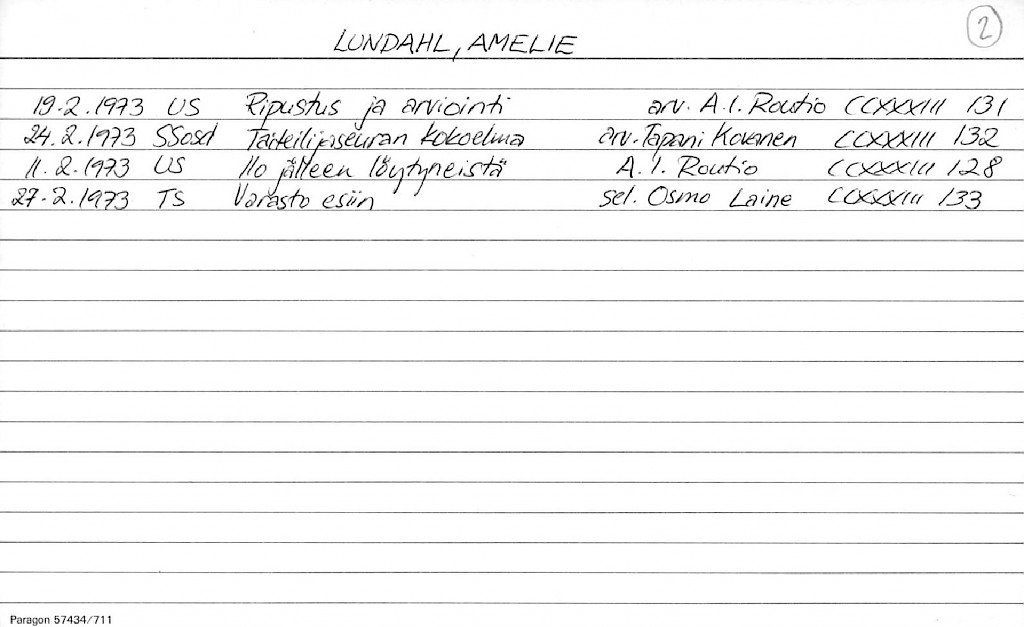 2
LUNDAHL, AMELIE
19.2.1973 US Ripustus ja arviointi arv. A.I. Routio CCXXXIII 131
24.2.1973 SSosd Taiteilijaseuran kokoelma arv. Tapani Kovanen CCXXXIII 132
11.2.1973 US Ilo jälleen löytyneistä A.I. Routio CCXXXIII 128
27.2.1973 TS Varasto esiin sel. Osmo Laine CCXXXIII 133
Paragon 57434/711